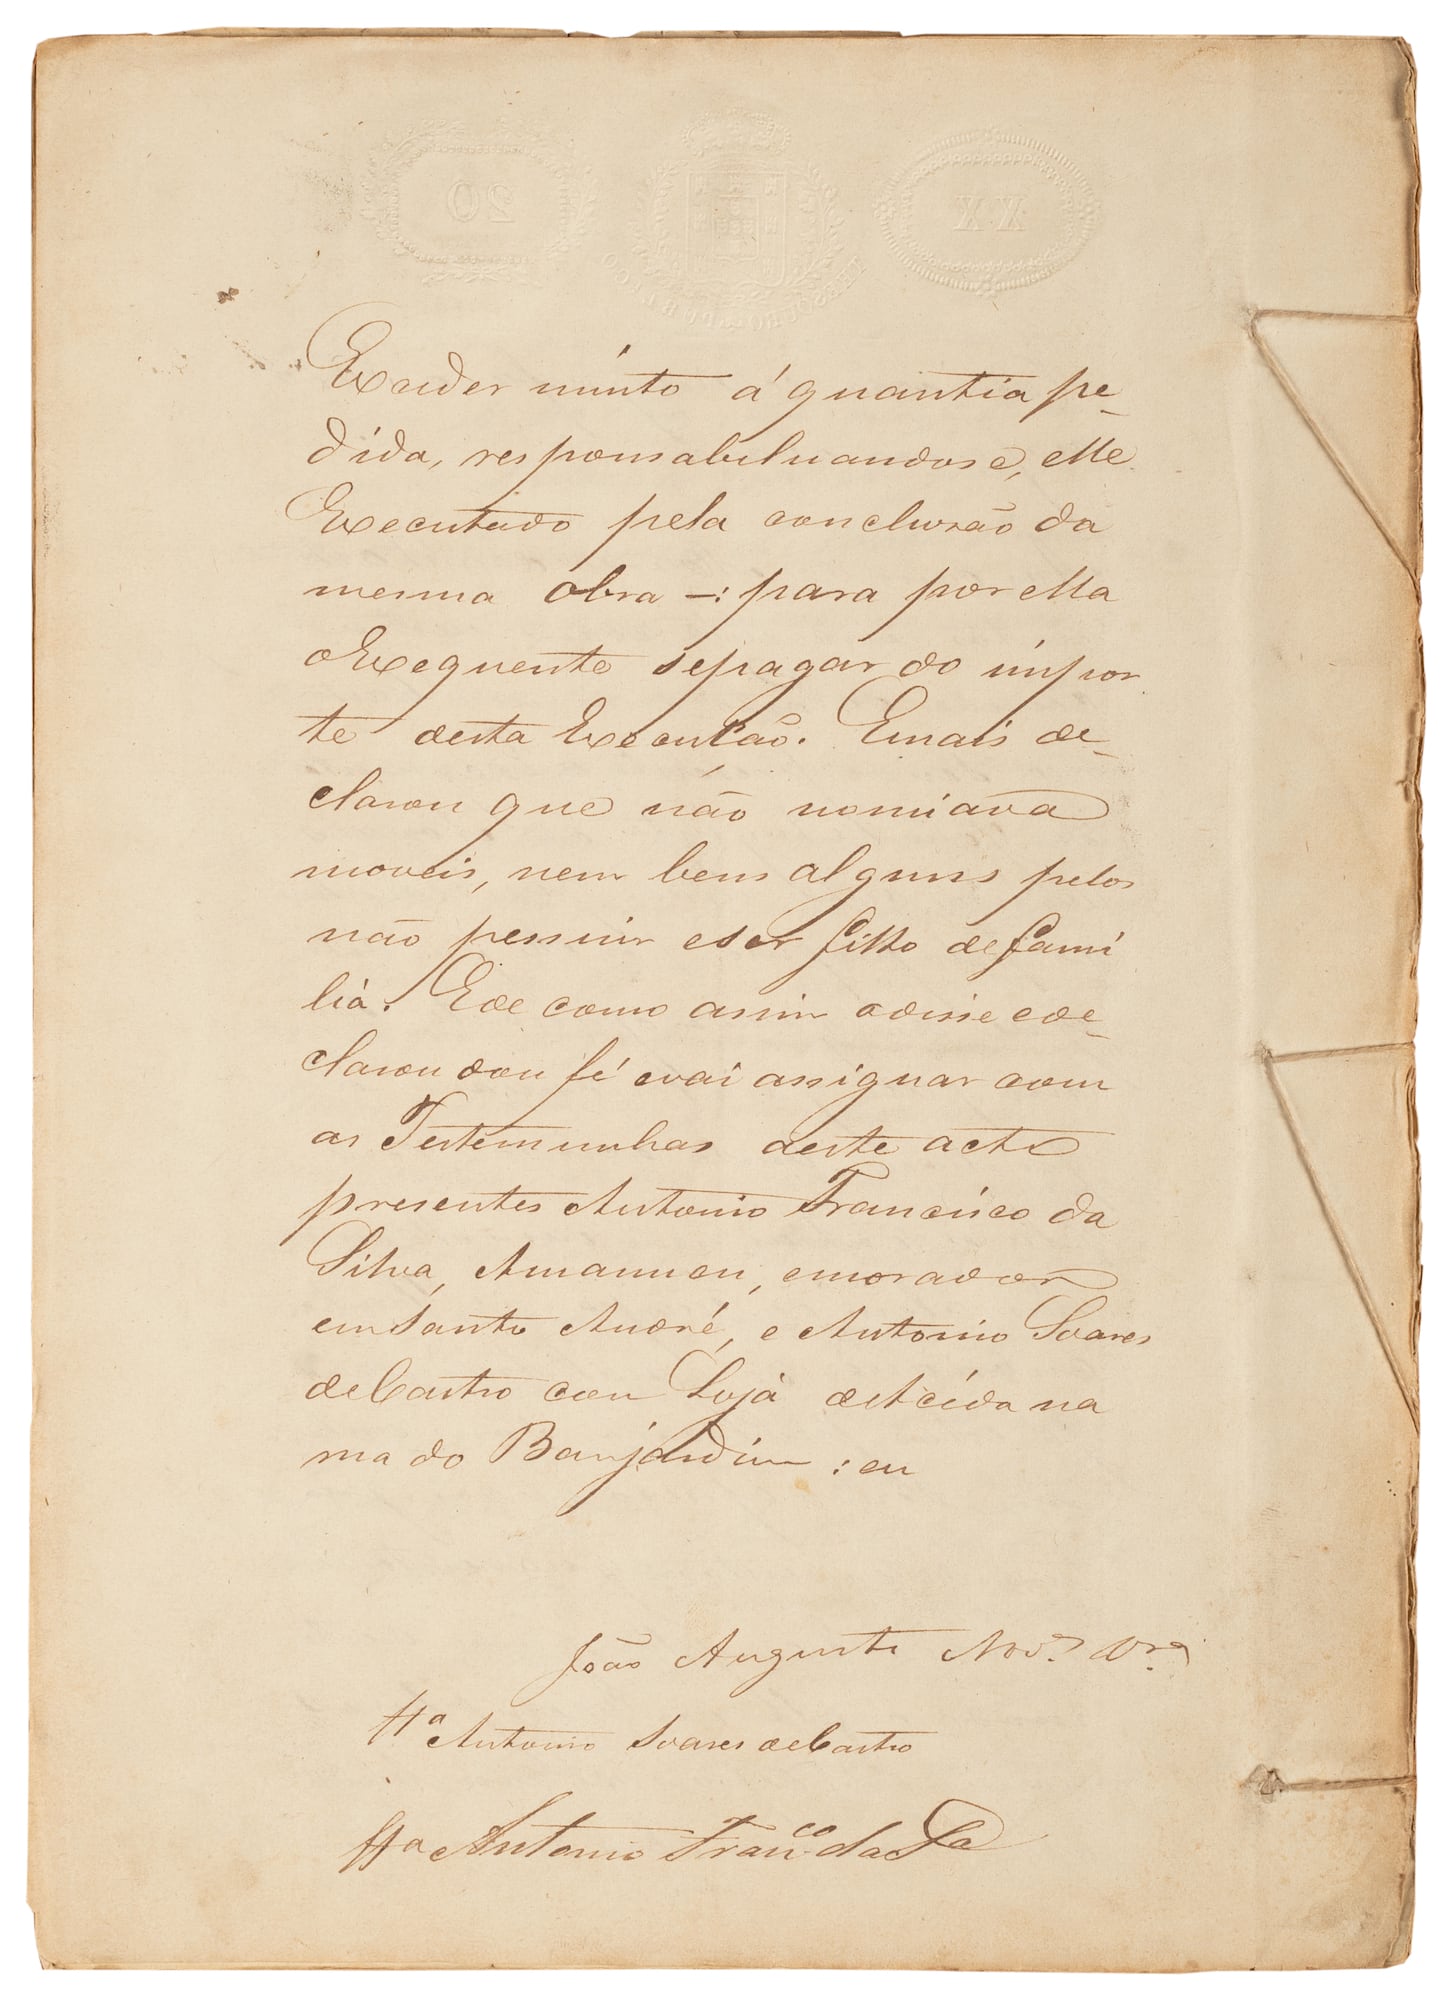 XX
20
THESOURO PUBLICO
Exceder muito á quantia pe-
dida, responsabilizandose, elle
Executado pela conclusão da
mesma obra –: para por ella
o Exequente se pagar do impor
te desta Execução. E mais de-
clarou que não nomiava
moveis, nem bens alguns pelos
não possuir e ser filho de fami
lia. E de como assim o disse e de-
clarou dou fé e vai assignar com
as Testemunhas deste acto
presentes Antonio Francisco da
Silva, Amanuen, e morador
em Santo André, e Antonio Soares
de Castro com Loja de
na
rua do Bomjardim : eu
João Augusto
Tta Antonio Soares de Castro
Tta Antonio Franco da Sa